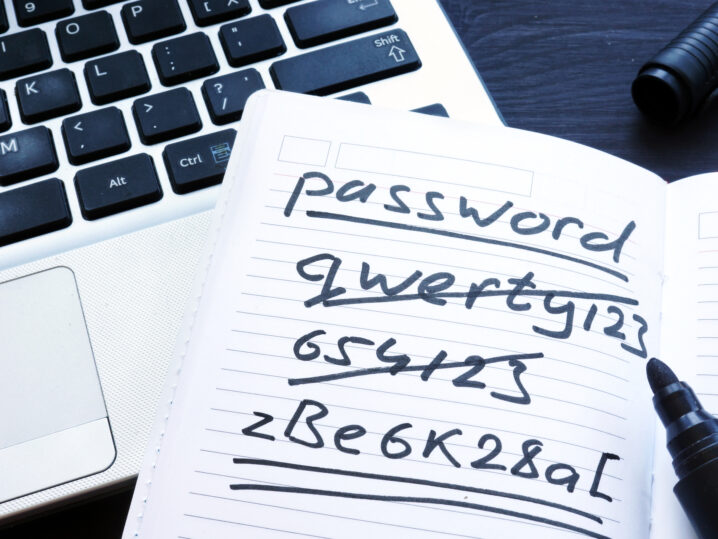 9
I O P
K L : ;
" '
Enter
Shift
M < , > . ? /
Alt Ctrl
password
qwerty123
654123
zBe6K28a[